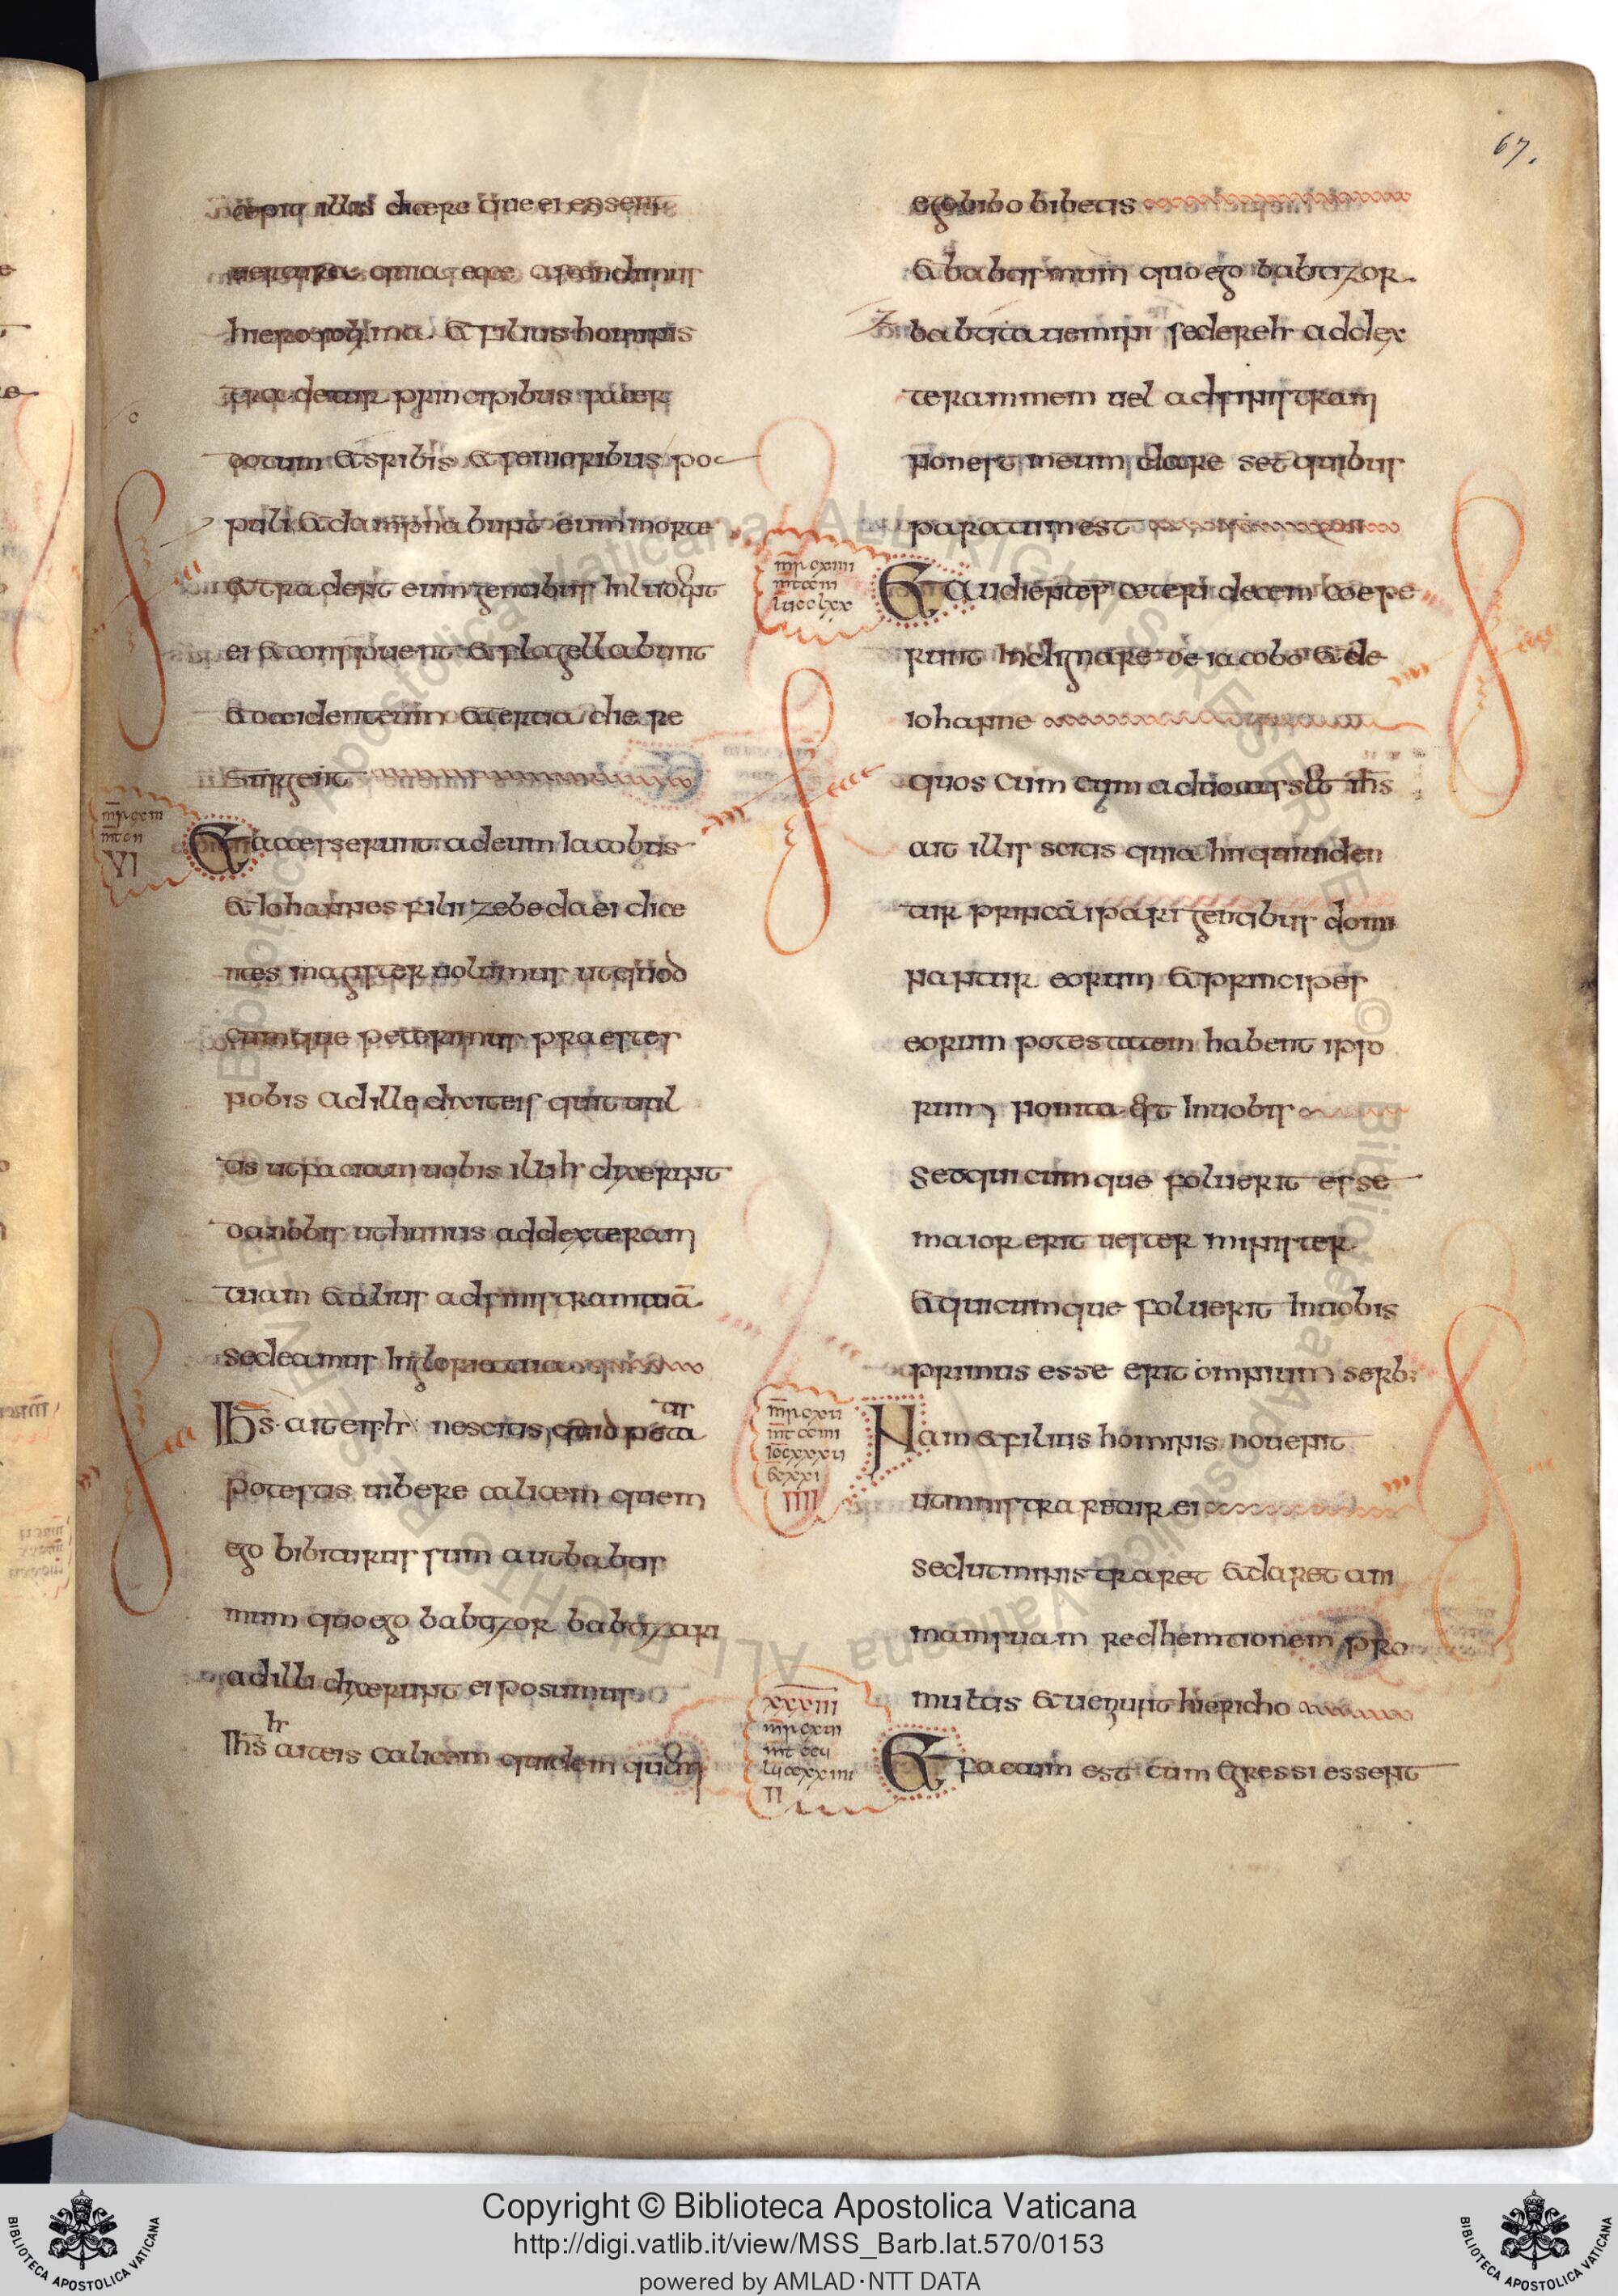 67.
coepit illis dicere que ei essent
uentura quia ecce ascendimus
hierosolima. et filius hominis
tradetur principibus sacer
dotum et scribis et senioribus po
puli et damnabunt eum morte
et tradent eum gentibus inludent
ei et conspuent et flagellabunt
et occident eum et tertia die re
surgent
mr cxiii
mt ccii
VI
Et accerserunt ad eum iacobus
et iohannes filii zebedaei dice
ntes magister uolumus ut quod
cumque petierimus praestes
nobis ad ille dixit eis quit uul
tis ut faciam uobis illi dixerunt
da nobis ut hunus ad dexteram
tuam et alius ad sinistram tuā
sedeamus in gloria tua
ihs ait eis nescitis quid peta
tis
potestis uibere calicem quem
ego bibiturus sum aut babtis
mum quo ego babtizor babtizari
ad illi dixerunt ei posumus
ihs ait eis calicem quidem quem
ego bibo bibetis
et babtismum quo ego babtizor
babtitauemini sedere ad dex
teram meam uel ad sinistram
non est meum dare set quibus
paratum est
mr cxiiii
mt cciii
lu cclxx
Et audientes ceteri decem coepe
runt indignare de iacobo et de
iohanne
quos cum cum aduocasset ihs
ait illis scitis quia hii qui uiden
tur principari gentibus domi
nantur eorum et principes
eorum potestatem habent ipso
rum non ita est in uobis
sed quicumque uoluerit esse
maior erit uester minister
et quicumque uoluerit in uobis
primus esse erit omnium serb:
IIII
Nam et filius hominis non uenit
ut ministraretur ei
sed ut ministraret et daret ani
mam suam redhemtionem pro
multis et uenunt hiericho
XXXIII
II
Et factum est cum egressi essent
Copyright © Biblioteca Apostolica Vaticana
http://digi.vatlib.it/view/MSS_Barb.lat.570/0153
powered by AMLAD·NTT DATA
BIBLIOTECA APOSTOLICA VATICANA
BIBLIOTECA APOSTOLICA VATICANA